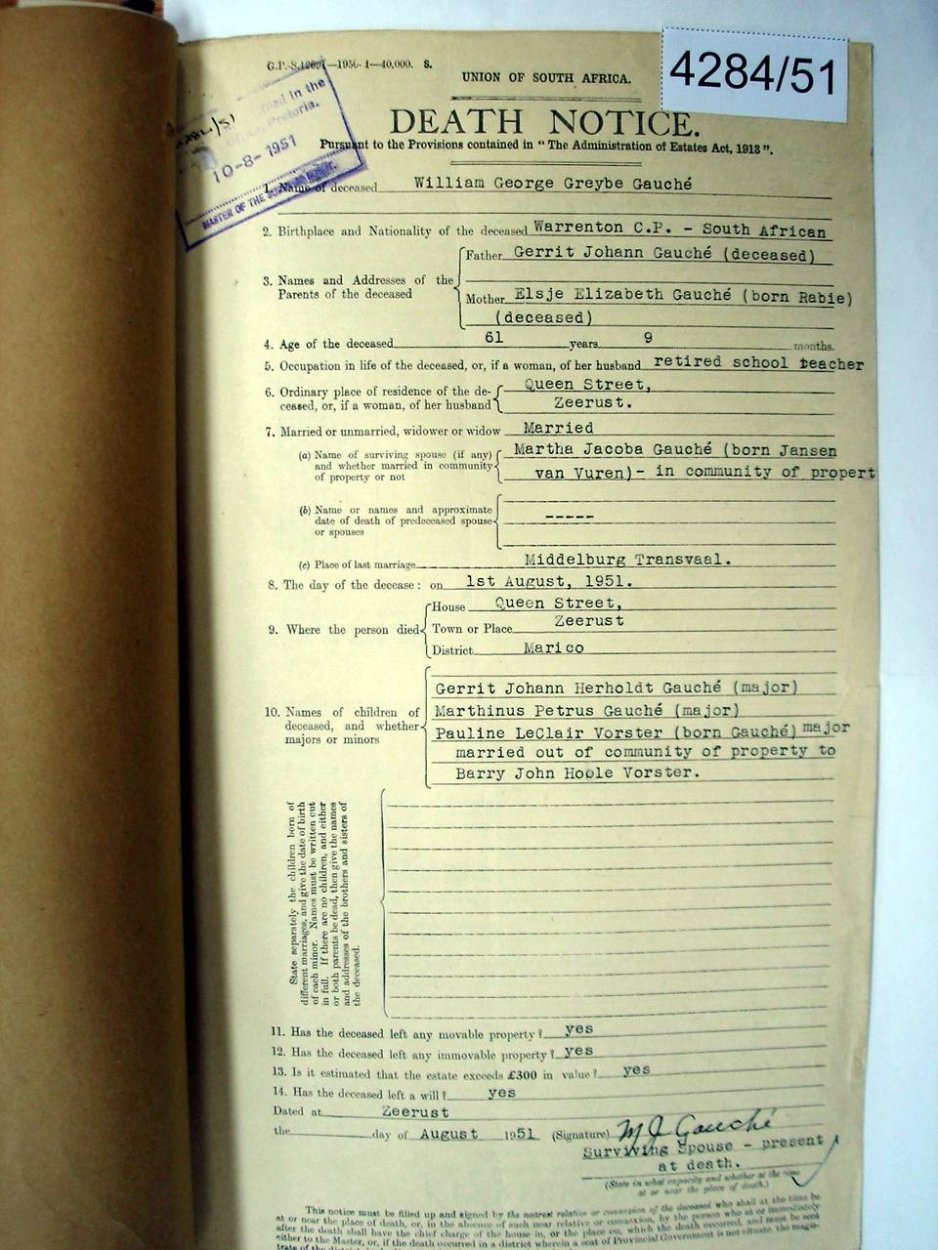 4284/51
G.P.-S. —195 - 1—40,000. S.
UNION OF SOUTH AFRICA.
DEATH NOTICE.
Pursuant to the Provisions contained in "The Administration of Estates Act, 1913".
in the
Pretoria.
10-8-1951
MASTER OF THE
1. Name of deceased William George Greybe Gauché
2. Birthplace and Nationality of the deceased Warrenton C.P. - South African
3. Names and Addresses of the Parents of the deceased
Father Gerrit Johann Gauché (deceased)
Mother Elsje Elizabeth Gauché (born Rabie)
(deceased)
4. Age of the deceased 61 years 9 months.
5. Occupation in life of the deceased, or, if a woman, of her husband retired school teacher
6. Ordinary place of residence of the de- Queen Street,
ceased, or, if a woman, of her husband Zeerust.
7. Married or unmarried, widower or widow Married
(a) Name of surviving spouse (if any) Martha Jacoba Gauché (born Jansen
and whether married in community van Vuren)- in community of propert
of property or not
(b) Name or names and approximate
date of death of predeceased spouse -----
or spouses
(c) Place of last marriage Middelburg Transvaal.
8. The day of the decease: on 1st August, 1951.
9. Where the person died
House Queen Street,
Town or Place Zeerust
District Marico
10. Names of children of
deceased, and whether
majors or minors
Gerrit Johann Herholdt Gauché (major)
Marthinus Petrus Gauché (major)
Pauline LeClair Vorster (born Gauché) major
married out of community of property to
Barry John Hoole Vorster.
State separately the children born of
different marriages, and give the date of birth
of each minor. Names must be written out
in full. If there are no children, and either
or both parents be dead, then give the names
and addresses of the brothers and sisters of
the deceased.
11. Has the deceased left any movable property? yes
12. Has the deceased left any immovable property? yes
13. Is it estimated that the estate exceeds £300 in value? yes
14. Has the deceased left a will? yes
Dated at Zeerust
the day of August 1951 (Signature) M J Gauché
Surviving Spouse - present
at death.
(State in what capacity and whether at the time
at or near the place of death.)
This notice must be filled up and signed by the nearest relative or connexion of the deceased who shall at the time be
at or near the place of death, or, in the absence of such near relative or connexion, by the person who at or immediately
after the death shall have the chief charge of the house in, or the place on, which the death occurred, and must be sent
either to the Master, or, if the death occurred in a district wherein a seat of Provincial Government is not situate the magis-
trate of the